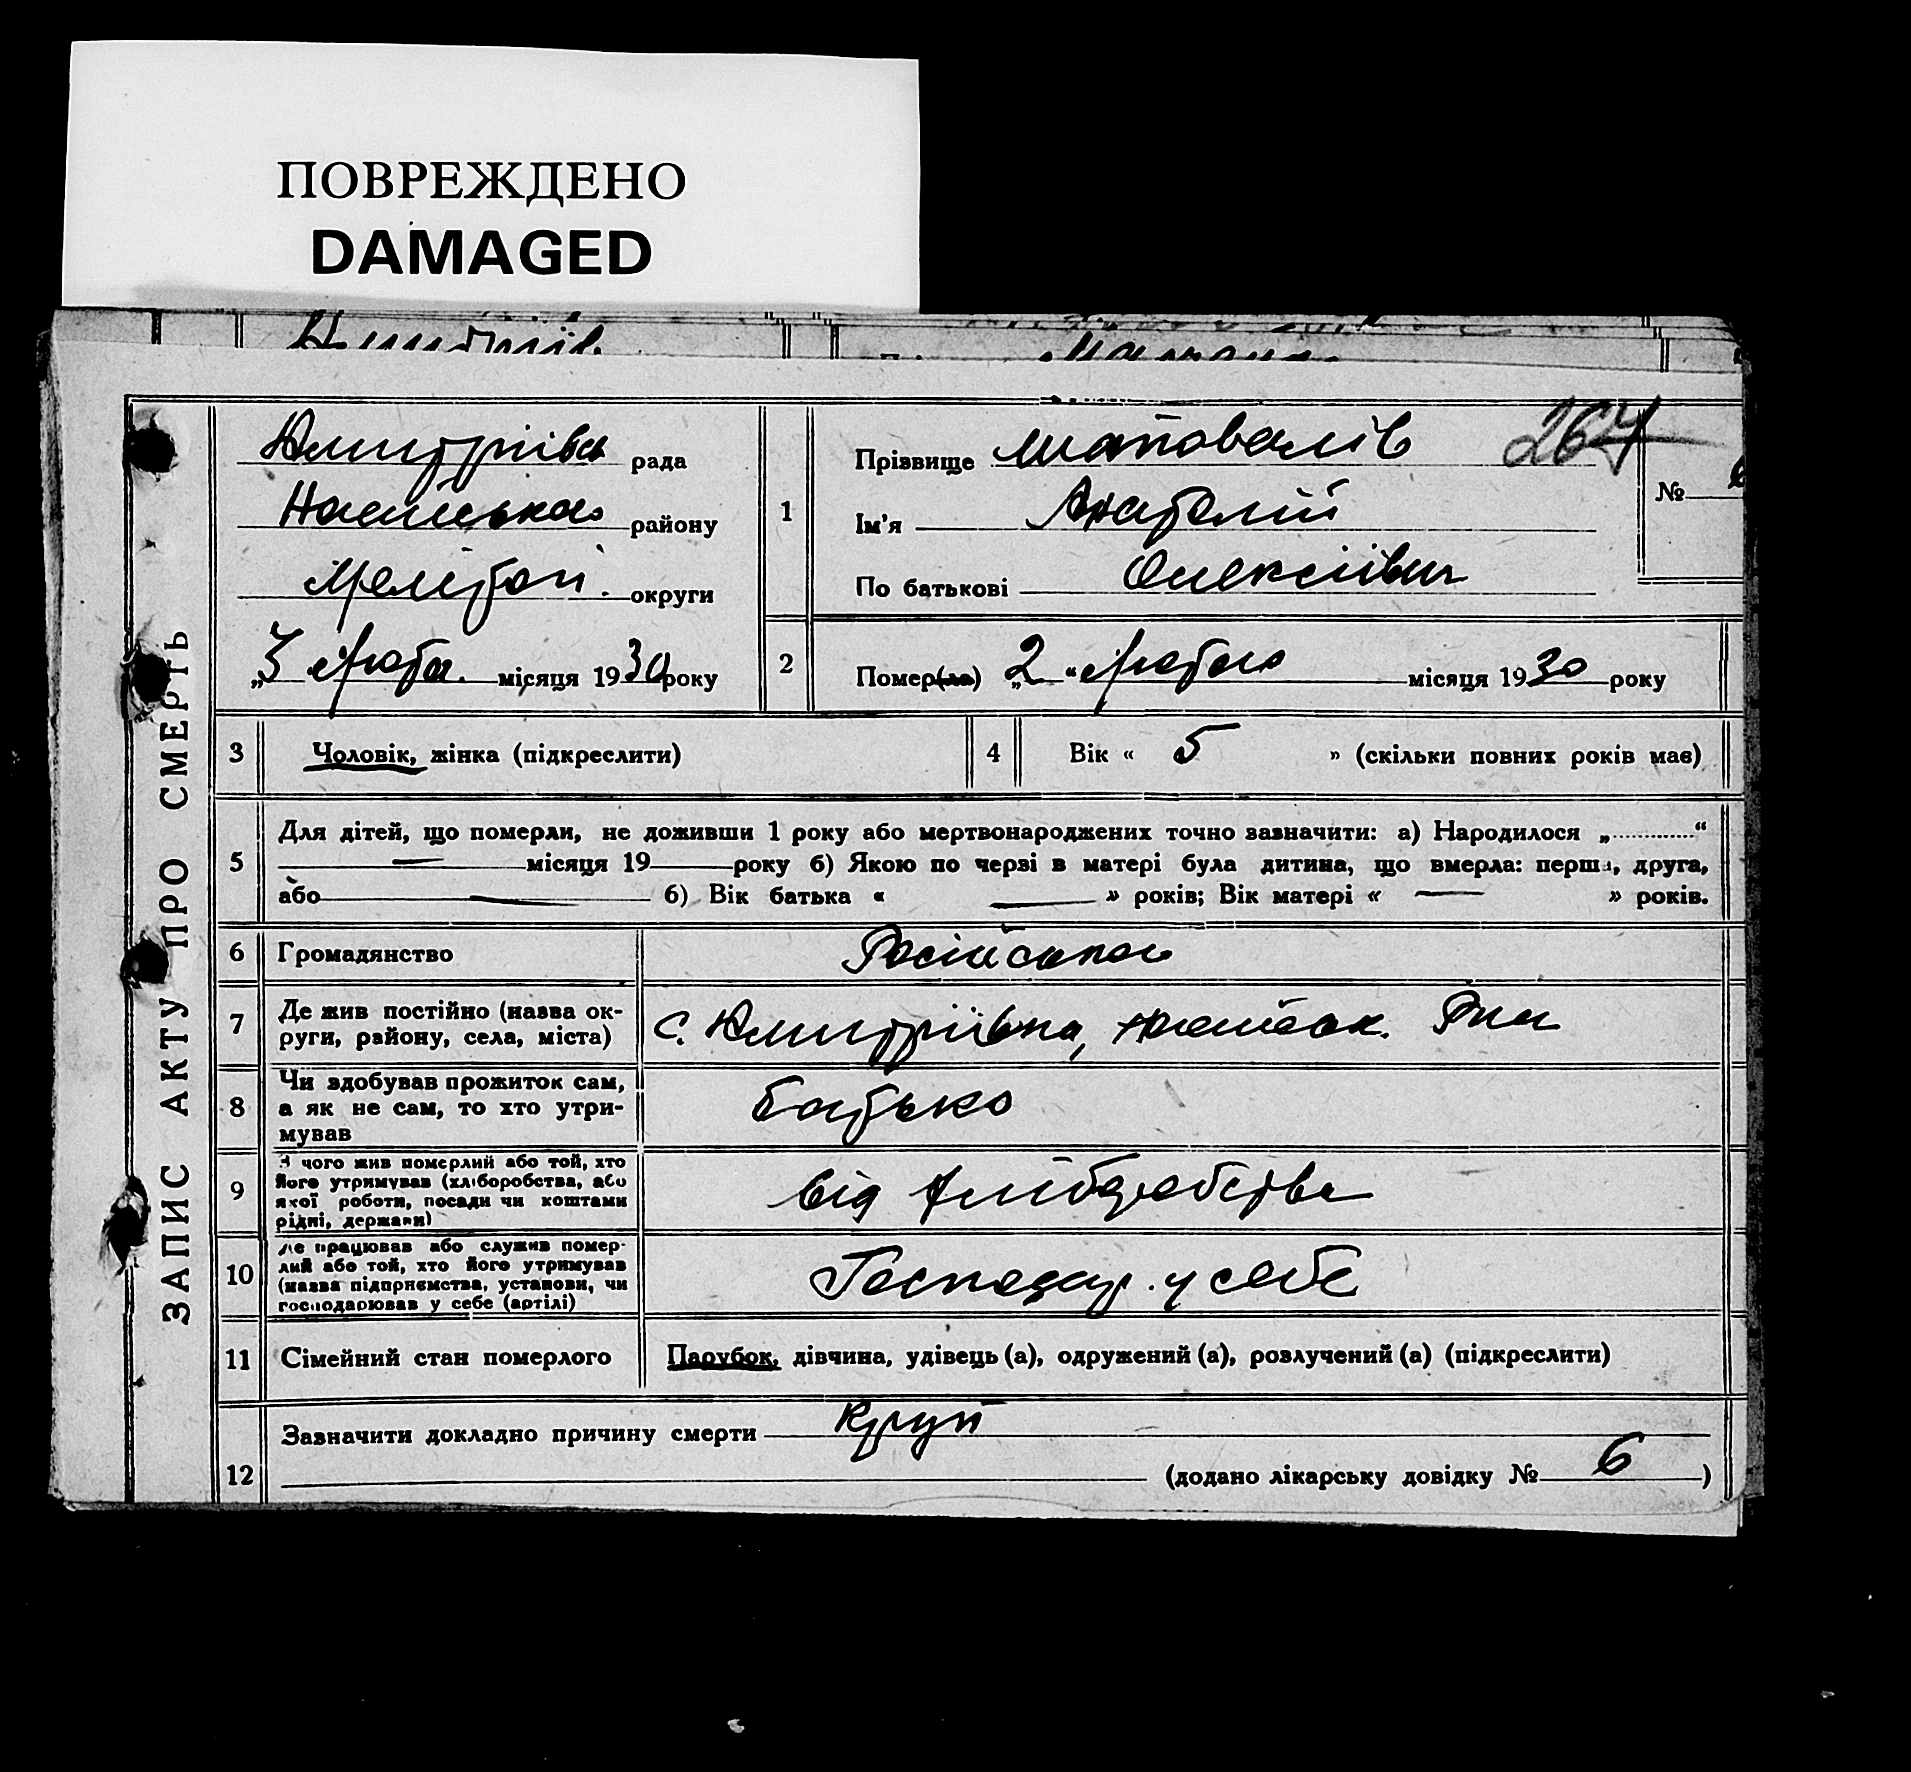 ПОВРЕЖДЕНО
DAMAGED
ЗАПИС АКТУ ПРО СМЕРТЬ
рада
району
Меліт округи
„3 люто. місяця 1930 року
1
Прізвище Шаповалів 267
Ім'я Анатолій
По батькові Олексійович
№
2
Помер(ла) „2“ лютого місяця 1930 року
3 Чоловік, жінка (підкреслити)
4 Вік « 5 » (скільки повних років має)
5
Для дітей, що померли, не доживши 1 року або мертвонароджених точно зазначити: а) Народилося „............“
— місяця 19 року б) Якою по черзі в матері була дитина, що вмерла: перша, друга,
або — б) Вік батька « — » років; Вік матері « — » років.
6 Громадянство Російська
7
Де жив постійно (назва ок-
руги, району, села, міста)
с. Дмитрівка,
8
Чи здобував прожиток сам,
а як не сам, то хто утри-
мував
батько
9
З чого жив померлий або той, хто
його утримував (хліборобства, або
якої роботи, посади чи коштами
рідні, держави)
від хліборобства
10
Де працював або служив помер-
лий або той, хто його утримував
(назва підприємства, установи, чи
господарював у себе (артілі)
Господар. у себе
11 Сімейний стан померлого Парубок, дівчина, удівець (а), одружений (а), розлучений (а) (підкреслити)
12
Зазначити докладно причину смерти Круп
(додано лікарську довідку № 6 )